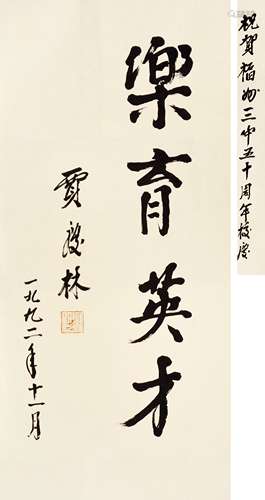 祝贺福州三中五十周年校庆
樂育英才
贾慶林
一九九二年十一月